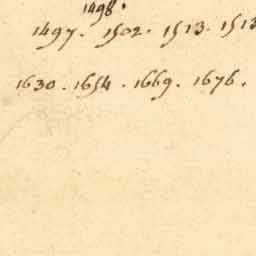 1498.
1497. 1502. 1513. 1513
1630. 1654. 1669. 1676.